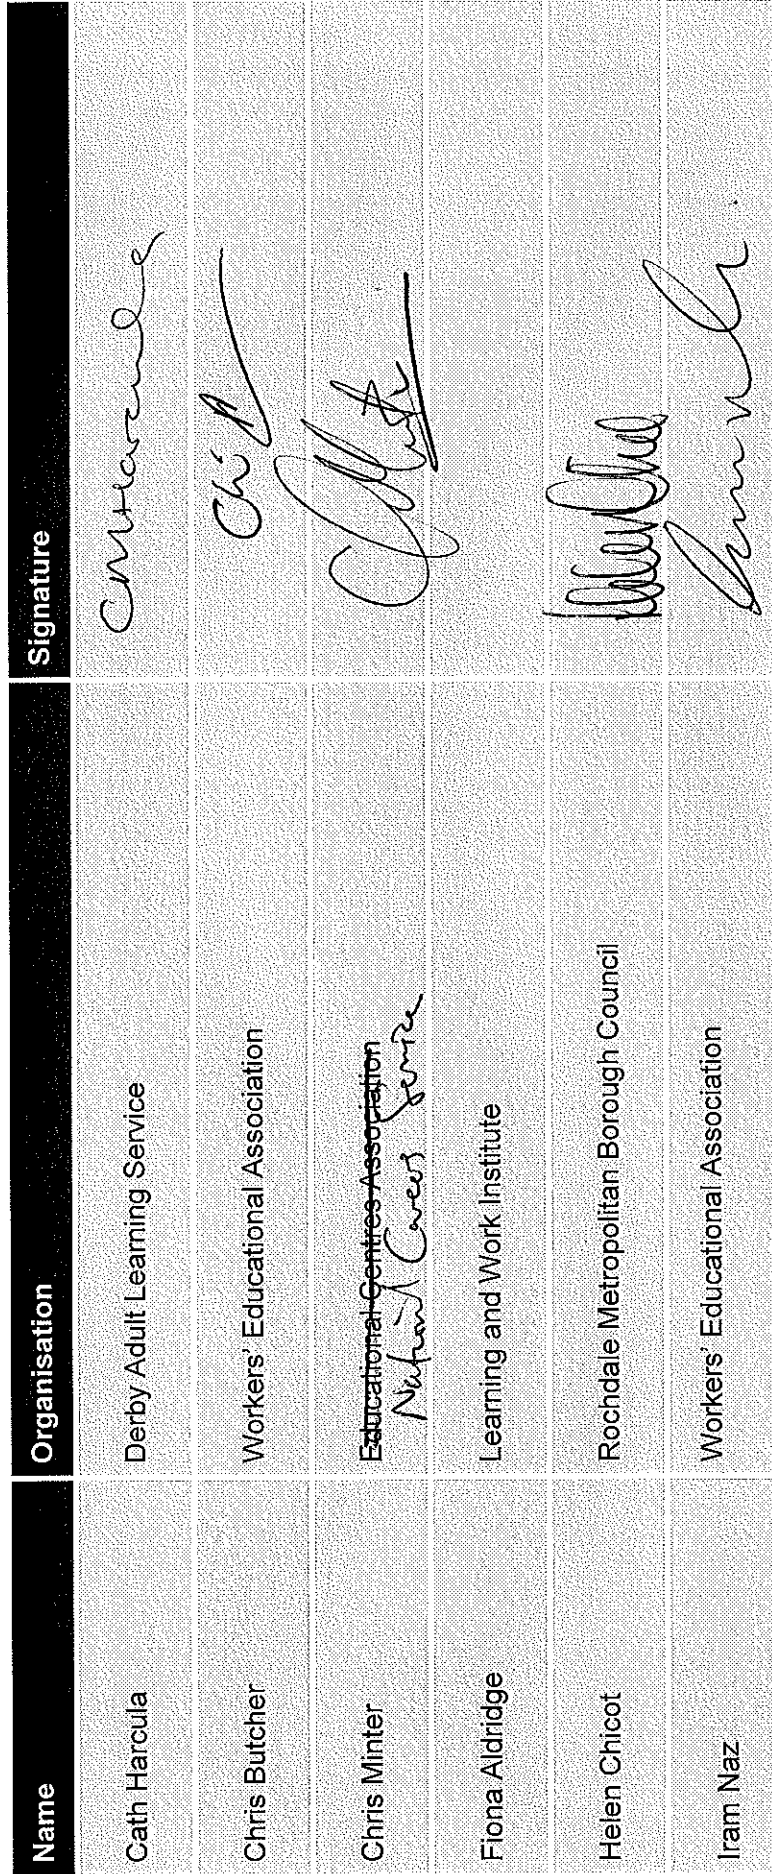 Name Organisation Signature
Cath Harcula Derby Adult Learning Service CMHarcula
Chris Butcher Workers' Educational Association
Chris Minter Educational Centres Association
National Careers Service
Fiona Aldridge Learning and Work Institute
Helen Chicot Rochdale Metropolitan Borough Council
Iram Naz Workers' Educational Association